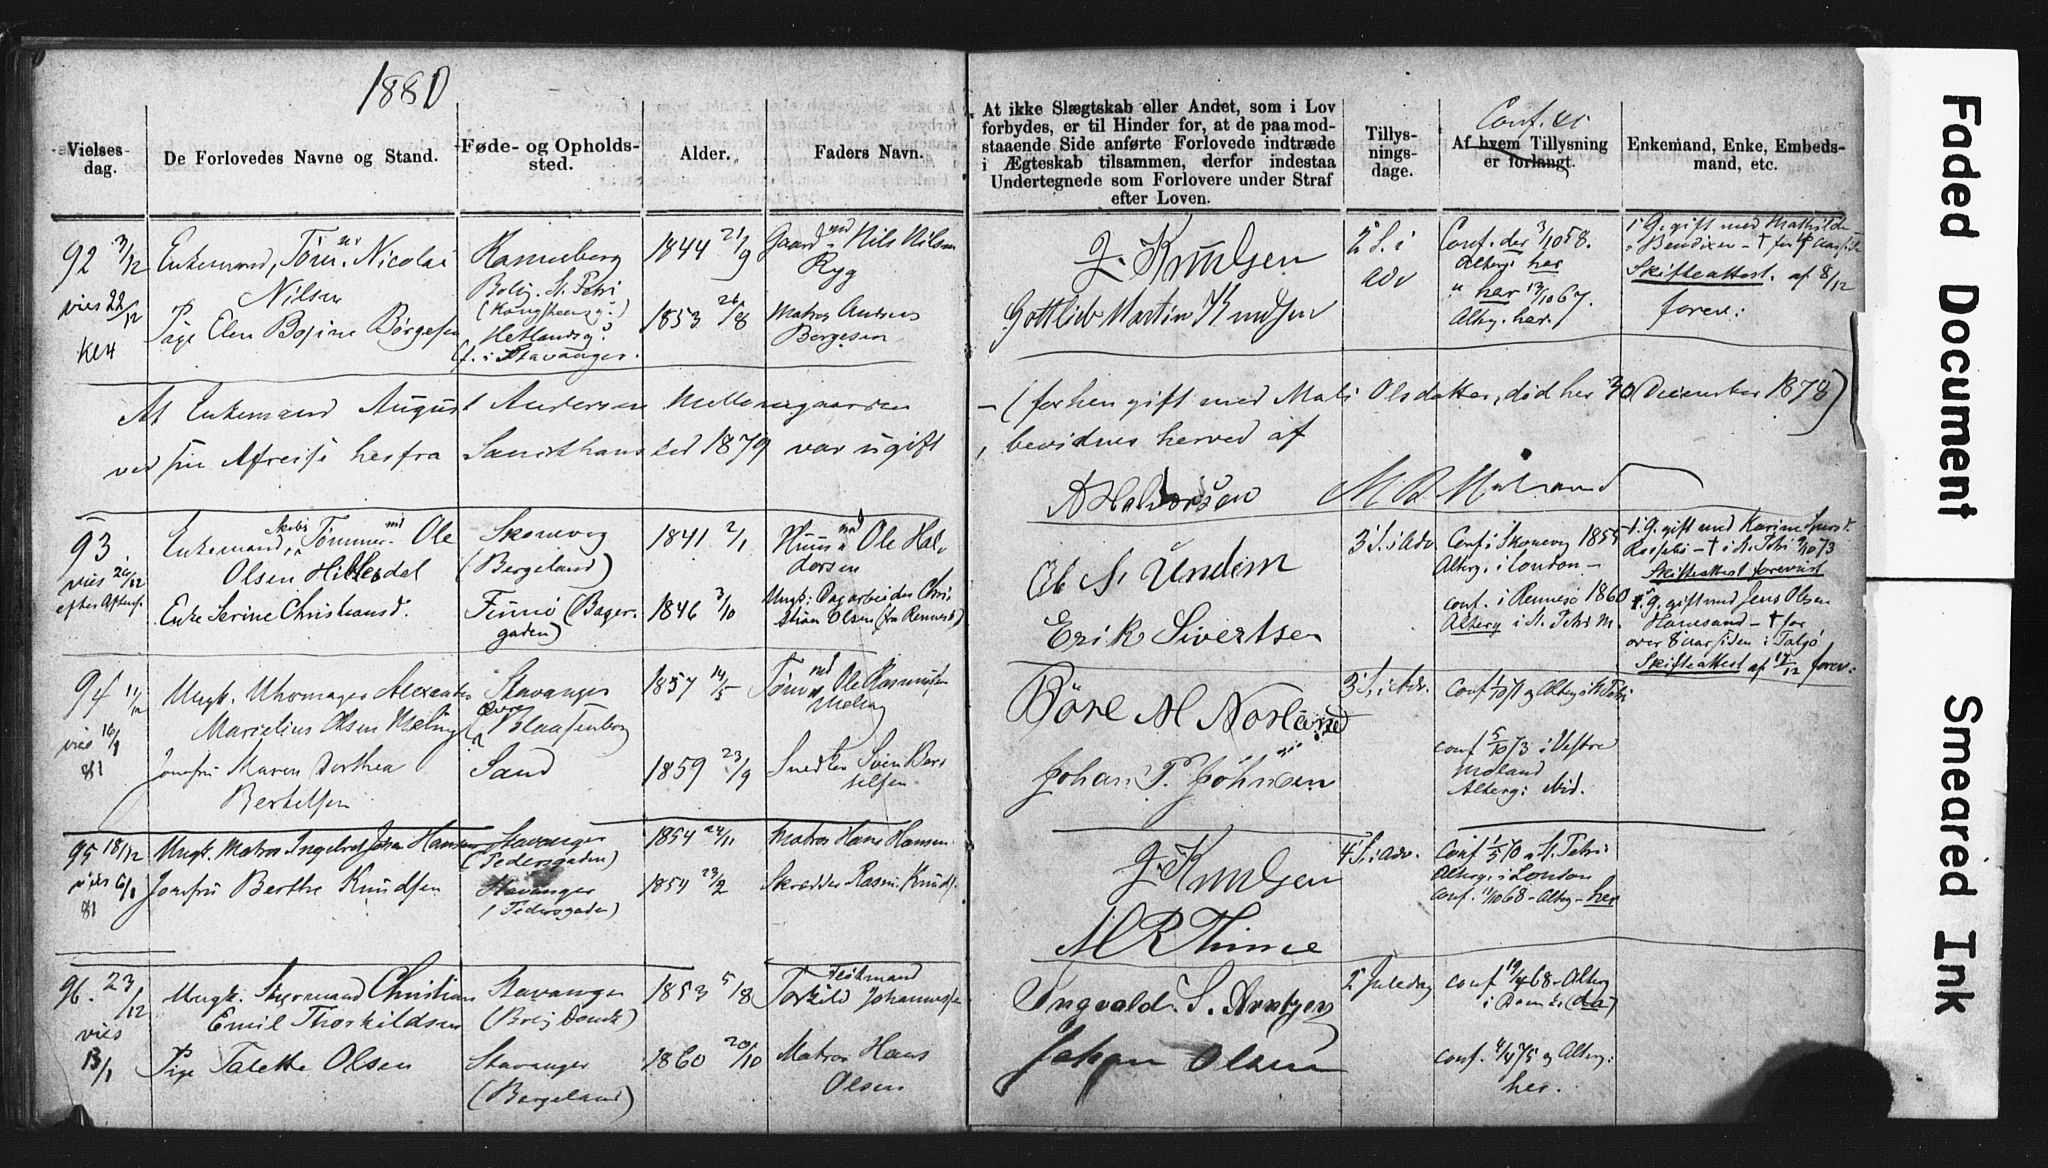 1880
Vielses-
dag.
De Forlovedes Navne og Stand.
Føde- og Opholds-
sted.
Alder.
Faders Navn.
At ikke Slægtskab eller Andet, som i Lov
forbydes, er til Hinder for, at de paa mod-
staaende Side anførte Forlovede indtræde
i Ægteskab tilsammen, derfor indestaa
Undertegnede som Forlovere under Straf
efter Loven.
Tillys-
nings-
dage.
Conf. et
Af hvem Tillysning
er forlangt.
Enkemand, Enke, Embeds-
mand, etc.
92 3/12
vies 22/12
Enkemand, Tøm. Nicolai
Nilsen
Pige Elen Bosine Børgesen
Bolig. St. Petri
(Kongsteensg.)
Hetlandsg.
f. i Stavanger.
1844 21/9
1853 26/8
Gaardmd Nils Nilsen
Ryg
Matros Andreas
Børgesen
J. Knudsen
Gottlieb Martin Knudsen
2 S. i
adv
Conf. der 3/10 58.
Alterg: her
" her 13/10 67.
Alterg. her.
1 G. gift med Mathilde
Bendixen - † for 4 Aar siden
Skifteattest. af 8/12
forev:
At Enkemand August Andersen Mellemgaarden
- (forhen gift med Mali Olsdatter, død her 30 December 1878)
ved sin Afreise herfra Sancthanstid 1879 var ugift
, bevidnes herved af
A Halvorsen
93
vies 26/12
efter Aftens.
Enkemand, Skibstømmermd Ole
Olsen Hillesdal
Enke Serine Christiansd.
Skonevig
(Bergeland)
Finnø (Bager-
gaden)
1841 2/1
1846 3/10
Huusmd Ole Hal-
vorsen
Ungk: Dagarbeider Chri-
stian Olsen (fra Rennesø)
Ob S. Undem
Erik Sivertsen
3 S. i Adv.
Conf. i Skonevig 1855
Alterg. i London -
conf. i Rennesø 1860
Alterg i St. Petri M.
1 G. gift med Karine
- † i St. Petri 9/10 73
Skifteattest forevist
1 G. gift med Jens Olsen
- † for
over 8 aar siden i Talgø
Skifteattest af 17/12 forev:
94 11/12
vies 16/1
81
Ungk. Uhrmager Alexander
Marselius Olsen Meling
Jomfru Maren Dorthea
Bertelsen
Stavanger
Øvre
(Blaasenborg)
Sand
1857 14/5
1859 23/9
Tømmermd Ole Rasmussen
Meling
Snedker Svein Ber-
telsen.
Børe M Norland
Johan P. Johnsen
3 S. i Adv.
Conf 1/10 71 og Alterg i St. Petri
conf 5/10 73 i Vestre
Moland
Alterg: ibid.
95 18/12
vies 6/1
81
Ungk. Matros Ingebret Johan Hansen
Jomfru Berthe Knudsen
Stavanger
(Pedersgaden)
Stavanger
(Pedersgaden)
1854 24/11
1854 23/2
Matros Hans Hansen
Skrædder Rasm. Knuds.
J. Knudsen
M R Thime
4 S. i Adv.
Conf 1/5 70 i St. Petri
Alterg: i London
conf. 11/10 68 - Alterg - her
96. 23/12
vies
13/1
Ungk. Styrmand Christian
Emil Thorkildsen
Pige Talette Olsen
Stavanger
Stavanger
(Bergeland)
1853 5/8
1860 20/10
Torkild Johannesen
Matros Hans
Olsen
Ingvald S. Arntzen
Johan Olsen
2 Juledag
conf 19/4 68 - Alterg
conf. 4/4 75 og Alterg:
her.
Faded Document
Smeared Ink